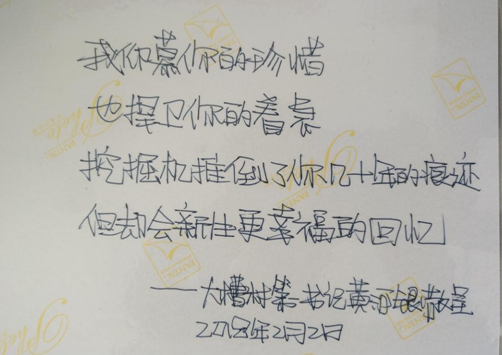 我仰慕你的珍惜
也捍卫你的尊衰
挖掘机摧倒了你几十年的痕迹
但却会新生更幸福的回忆
——大槽村第一书记黄河银敬呈
2018年2月2日